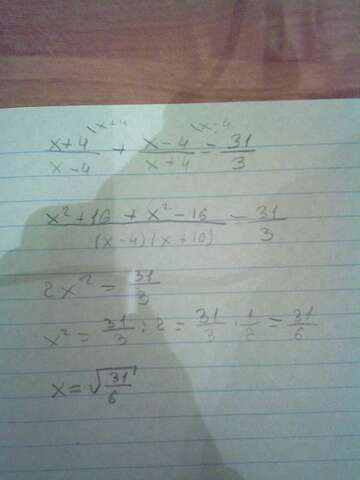 x+4 \x+4 / x-4 + x-4 \x-4 / x+4 = 31/3
x²+16 + x²-16 / (x-4)(x+10) = 31/3
2x² = 31/3
x² = 31/3 : 2 = 31/3 · 1/2 = 31/6
x = √31/6